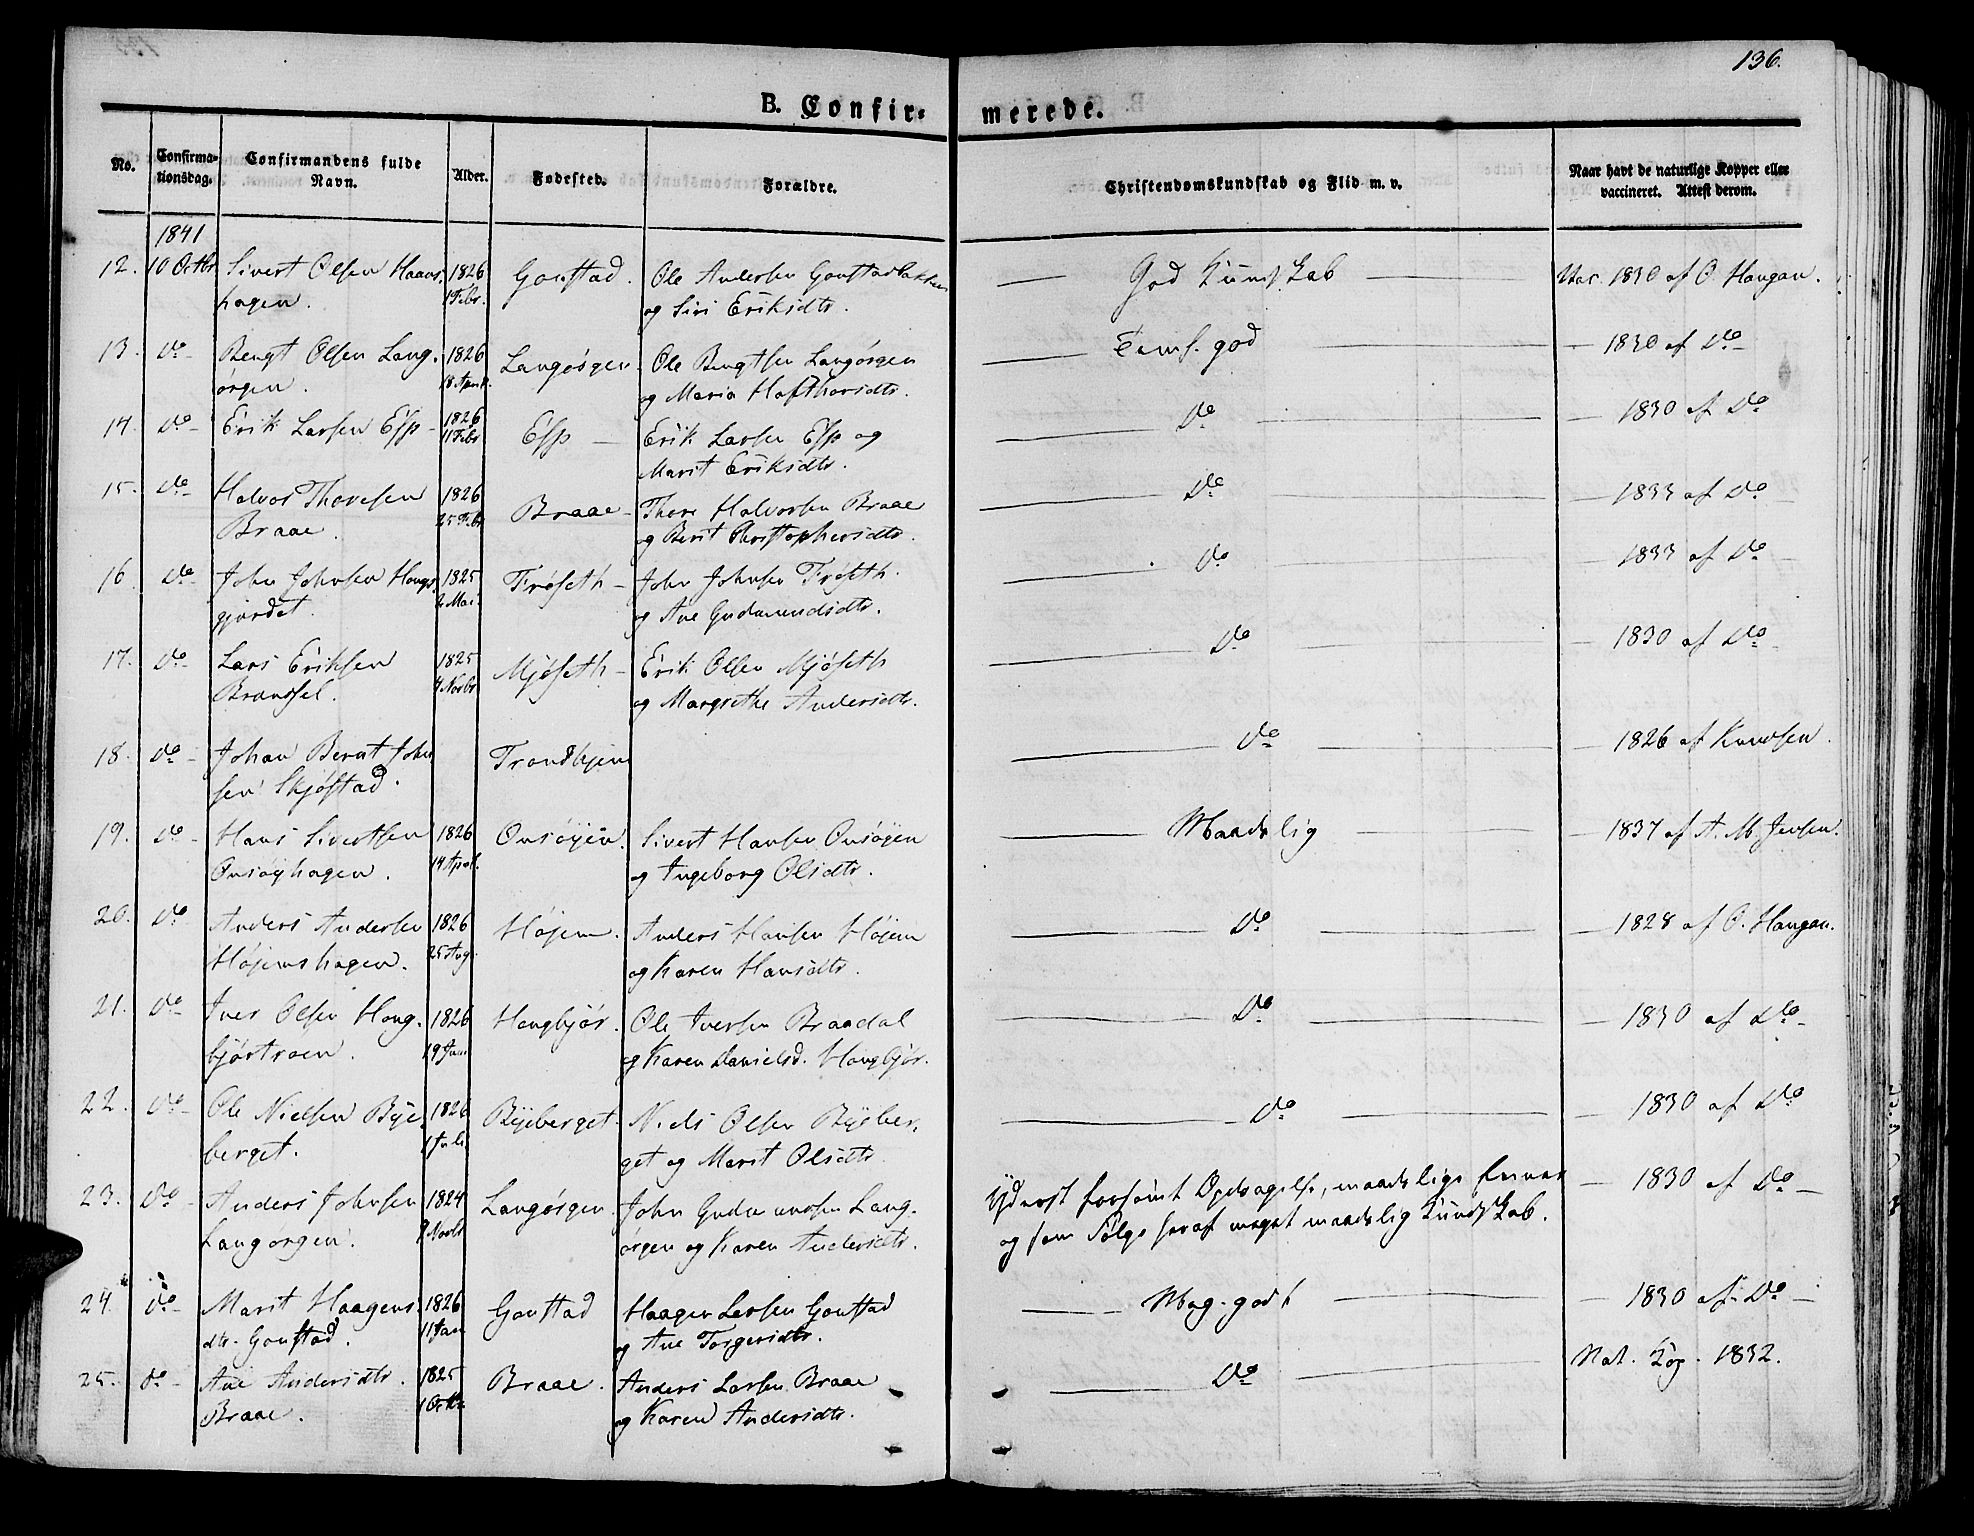 136.
B. Confir- merede.
No. Confirma-tionsdag. Confirmandens fulde Navn. Alder. Fødested. Forældre. Christendomskundskab og Flid m. v. Naar havt de naturlige Kopper eller vaccineret. Attest derom.
1841
12. 10 Octbr Sivert Olsen Haavs- 1826 Gonstad. Ole Andersen Gonstadbakken God Kundskab Vac. 1830 af O. Haugan.
hagen. 1 Febr. og Siri Eriksdtr.
13. Do Bengt Olsen Lang- 1826 Langørgen Ole Bengtsen Langørgen Tems. god 1830 af Do
ørgen. 18 April. og Maria Hafthorsdtr.
14. Do Erik Larsen Esp 1826 Esp Erik Larsen Esp og Do 1830 af Do
11 Febr Marit Eriksdtr.
15. Do Halvor Thoresen 1826 Braae Thore Halvorsen Braae Do 1833 af Do
Braae. 25 Febr og Berit Christophersdtr.
16. Do John Johnsen Haugs- 1825 Frøseth John Johnsen Frøseth Do 1833 af Do
gjærdet. 2 Mai. og Ane Gudmundsdtr.
17. Do Lars Eriksen 1825 Mjøseth Erik Olsen Mjøseth Do 1830 af Do
4 Novbr og Margrethe Andersdtr.
18. Do Johan Bernt John- Trondhjem Do 1826 af Knudsen.
sen Skjøstad.
19. Do Hans Sivertsen 1826 Onsøyen. Sivert Hansen Onsøyen Maadelig 1837 af A. M. Jensen.
Onsøyhagen. 14 April. og Ingeborg Olsdtr.
20. Do Anders Andersen 1826 Høiem. Anders Hansen Høiem Do 1828 af O. Haugan.
Høiemshagen. 25 Aug. og Karen Hansdtr.
21. Do Iver Olsen Haug- 1826 Haugbjør. Ole Iversen Braadal Do 1830 af Do
bjørtrøen. 19 Jan og Karen Danielsd. Haugbjør.
22. Do Ole Nielsen Bye- 1826 Byeberget. Niels Olsen Byeber- Do 1830 af Do
berget. 1 Juli. get og Marit Olsdtr.
23. Do Anders Johnsen 1824 Langørgen. John Gudmundsen Lang- Yderst forsømt Opdragelse, maadelige Evner 1830 af Do
Langørgen. 7 Novbr ørgen og Karen Andersdtr. og som Følge heraf meget maadelig Kundskab.
24. Do Marit Haagens- 1826 Gonstad Haagen Larsen Gonstad Meg. godt 1830 af Do
dtr. Gonstad. 11 Jan og Ane Torgersdtr.
25. Do Ane Andersdtr. 1825 Braae. Anders Larsen Braae Do Nat. Kop. 1832.
Braae. 1 Octbr. og Karen Andersdtr.